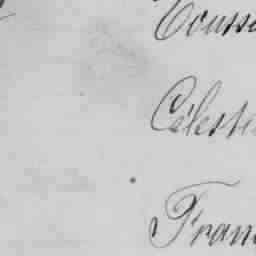 Touss
Célesti
Fran